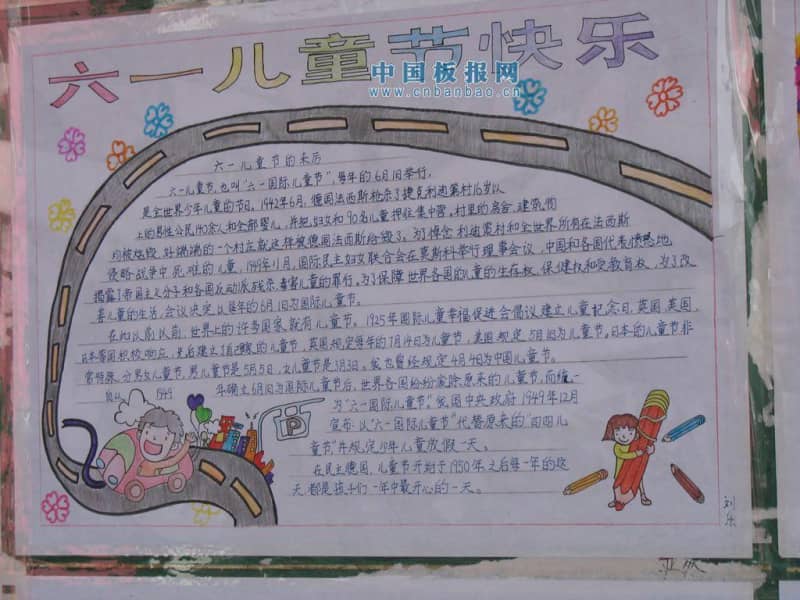 六一儿童节快乐
中国板报网
www.cnbanbao.cn
六一儿童节的来历
六一儿童节，也叫"六一国际儿童节"，每年的6月1日举行，
是全世界少年儿童的节日。1942年6月，德国法西斯枪杀了捷克利迪策村16岁以
上的男性公民140余人和全部婴儿，并把妇女和90名儿童押往集中营。村里的房舍、建筑物
均被烧毁，好端端的一个村庄就这样被德国法西斯给毁了。为了悼念利迪策村和全世界所有在法西斯
侵略战争中死难的儿童，1949年11月，国际民主妇女联合会在莫斯科举行理事会议，中国和各国代表愤怒地
揭露了帝国主义分子和各国反动派残杀、毒害儿童的罪行。为了保障世界各国的儿童的生存权、保健权和受教育权，为了改
善儿童的生活，会议决定以每年的6月1日为国际儿童节。
在此以前以前，世界上的许多国家就有儿童节。1925年国际儿童幸福促进会倡议建立儿童纪念日，英国，美国，
日本等国积极响应，先后建立了自己的儿童节，英国规定每年的7月14日为儿童节，美国规定5月1日为儿童节。日本的儿童节非
常特殊，分男女儿童节，男儿童节是5月5日，女儿童节是3月3日。我也曾经规定4月4日为中国儿童节。
自从 1949 年确立6月1日为国际儿童节后，世界各国纷纷废除原来的儿童节，而统一
为"六一国际儿童节"。我国中央政府1949年12月
宣布：以"六一国际儿童节"代替原来的"四四儿
童节"并规定少年儿童放假一天。
在民主德国，儿童节开始于1950年之后每一年的这
天都是孩子们一年中最开心的一天。
P
刘乐